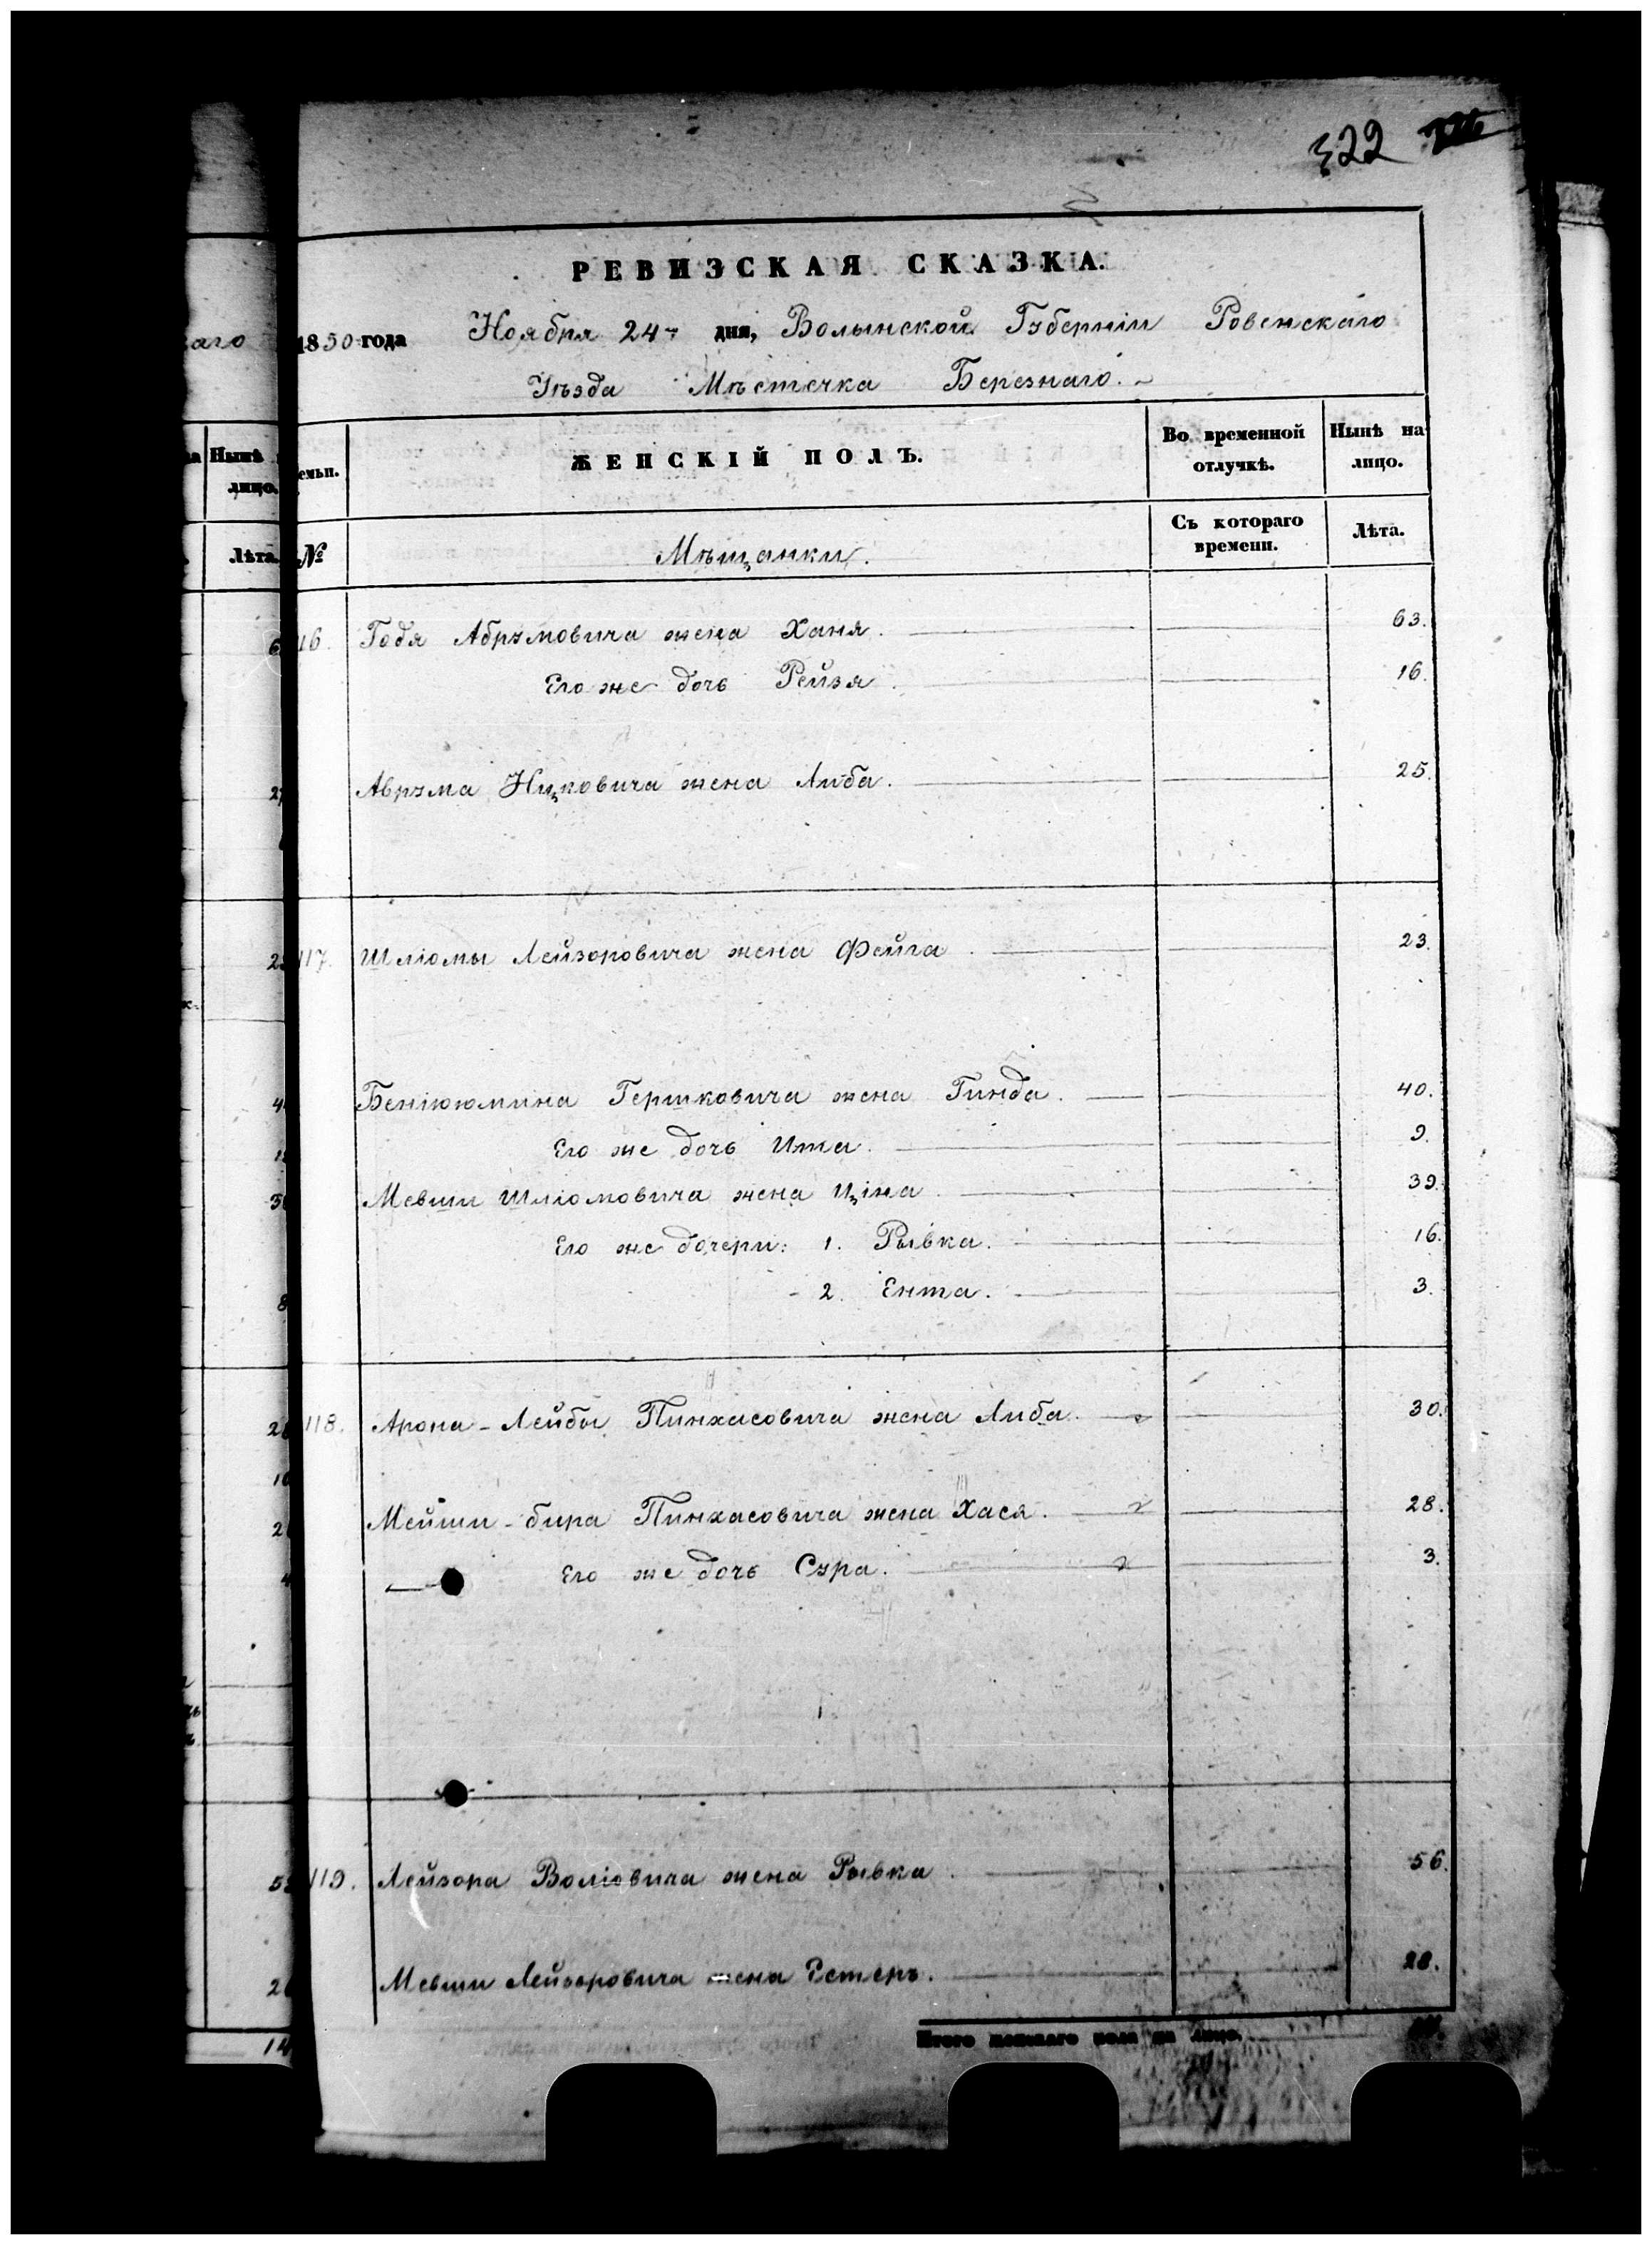 322
РЕВИЗСКАЯ СКАЗКА.
1850 года Ноября 24 дня, Волынской Губерніи Ровенскаго
Уѣзда Мѣстечка Березнаго.
аго
Нынѣ
лицо.
Лѣта.
емьи. ЖЕНСКІЙ ПОЛЪ. Во временной отлучкѣ. Нынѣ на лицо.
№ Мѣщанки. Съ котораго времени. Лѣта.
116. Годя Абрумовича жена Ханя. 63.
Его же дочь Рейзя. 16.
Аврума Ицковича жена Либа. 25.
117. Шліомы Лейзоровича жена Фейга. 23.
Беніюмина Гершковича жена Гинда. 40.
Его же дочь Ита. 9.
Мевши Шліомовича жена Ціна. 39.
Его же дочери: 1. Рывка. 16.
2. Ента. 3.
118. Арона-Лейбы Пинхасовича жена Либа. 30.
Мейши-бира Пинхасовича жена Хася. 28.
Его же дочь Сура. 3.
119. Лейзора Воліовича жена Рывка. 56.
Мевши Лейзоровича жена Естеръ. 28.
Итого женскаго пола на лицо.